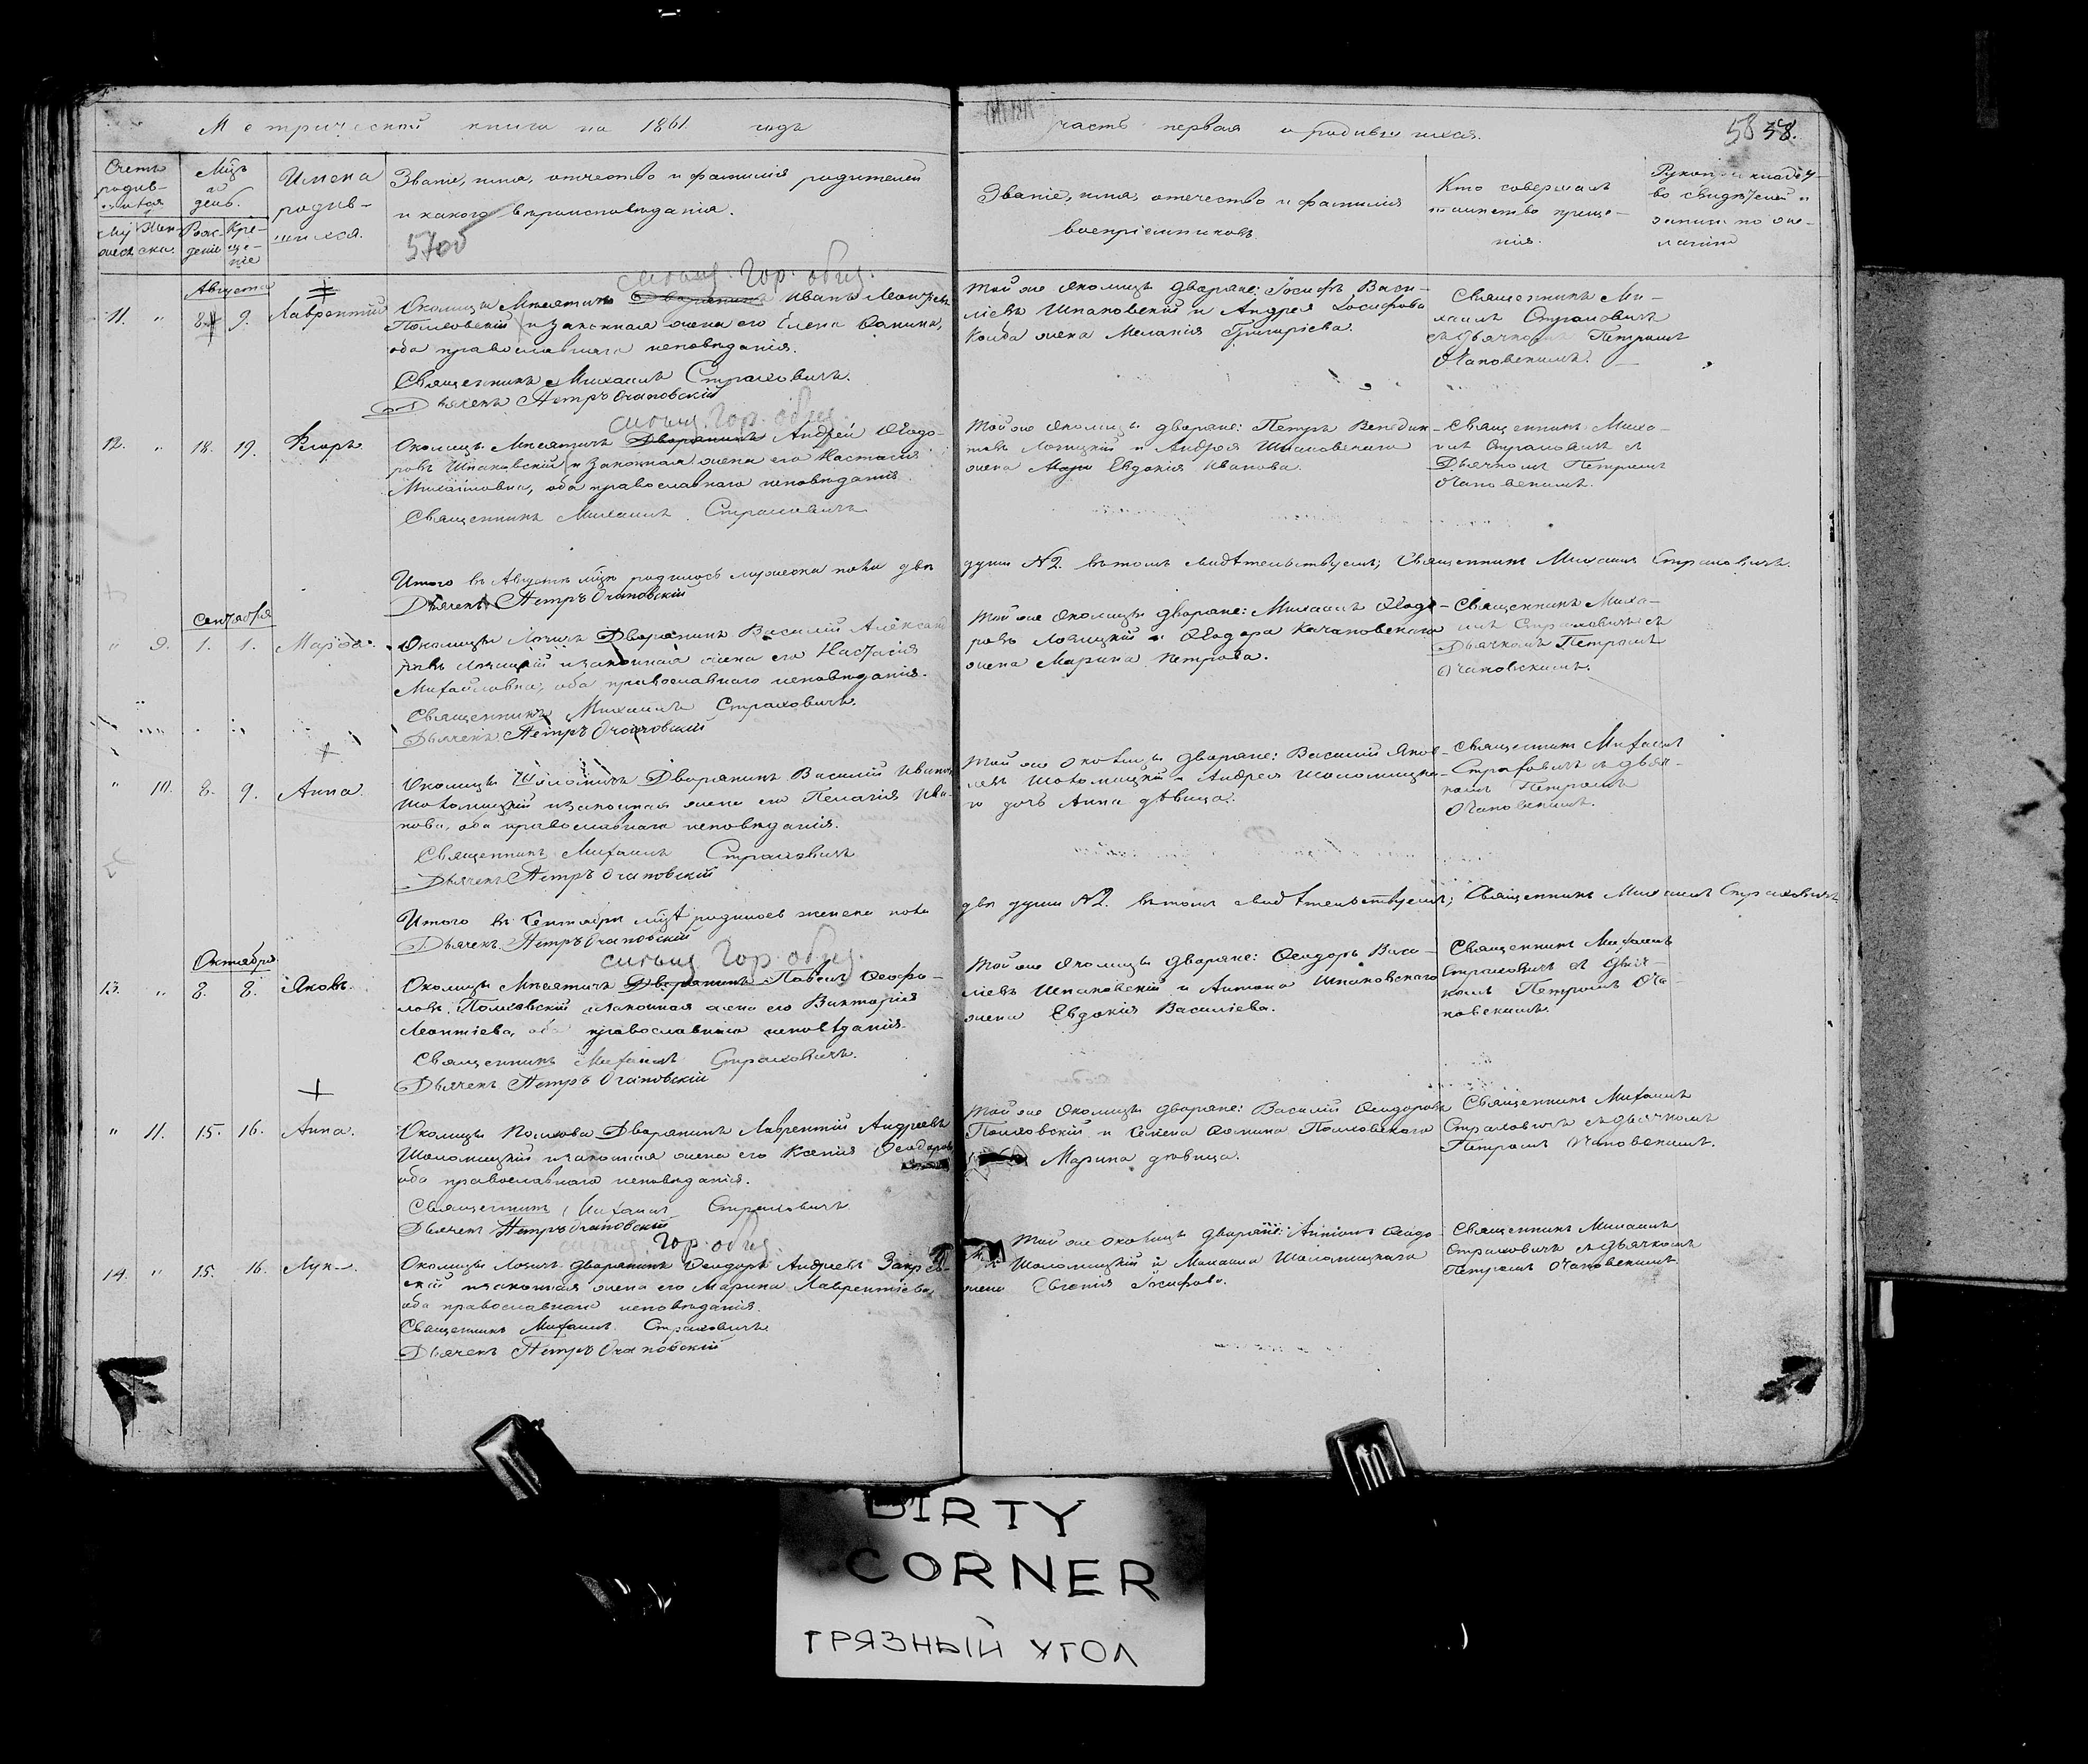 Метрической книги на 1861 годъ
часть первая о родившихся.
58 58.
Счетъ родив-
Мѣц
день.
Имена
родив-
шихся.
Званіе, имя, отчество и фамилія родителей
и какого вѣроисповѣданія.
5700
Званіе, имя, отчество и фамилія
воспріемниковъ.
Кто совершалъ
таинство креще-
нія.
Августа
Гор. общ.
11. " 8 9. Лаврентій
Околицы Мпсятичь Дворянинъ Иванъ Леонтьевъ
и законная жена его Елена
оба православнаго исповѣданія.
Священникъ Михаилъ Страховичъ.
Дьячекъ Петръ Очаповскій
Той же околицы дворяне: Іосифъ Васи-
ліевъ Шпаковскій и Андрея Іосифова
жена Меланія Григоріева.
Священникъ Ми-
хаилъ Страховичъ
съ Дьячкомъ Петромъ
Очаповскимъ.
Гор. общ.
12. " 18. 19. Флоръ.
Околицы Мпсятичь Дворянинъ Андрей Ѳеодо-
ровъ Шпаковскій и законная жена его Настасія
Михайловна, оба православнаго исповѣданія.
Священникъ Михаилъ Страховичъ
Той же околицы дворяне: Петръ Венедик-
товъ и Андрея Шпаковскаго
жена Евдокія Иванова.
Священникъ Миха-
илъ Страховичъ съ
Дьячкомъ Петромъ
Очаповскимъ.
Итого въ Августѣ мѣцѣ родилось мужеска пола двѣ
души №2. въ томъ свидѣтельствуемъ; Священникъ Михаилъ Страховичъ.
Дьячекъ Петръ Очаповскій
Сентября
" 9. 1. 1. Марѳа.
Околицы Дворянинъ Василій Александ
ровъ и законная жена его Настасія
Михайловна, оба православнаго исповѣданія.
Священникъ Михаилъ Страховичъ.
Дьячекъ Петръ Очаповскій
Той же околицы дворяне: Михаилъ Ѳеодо-
ровъ и Ѳеодора Качановскаго
жена Марина Петрова.
Священникъ Миха-
илъ Страховичъ съ
Дьячкомъ Петромъ
Очаповскимъ.
" 10. 8. 9. Анна.
Околицы Дворянинъ Василій Ивановъ
Шоломицкій и законная жена его Пелагія Ива-
нова, оба православнаго исповѣданія.
Священникъ Михаилъ Страховичъ
Дьячекъ Петръ Очаповскій
Той же околицы дворяне: Василій Яков-
левъ Шоломицкій и Андрея Шоломицка-
го дочь Анна дѣвица.
Священникъ Михаилъ
Страховичъ съ Дьяч-
комъ Петромъ
Очаповскимъ.
Итого въ Сентябрѣ мцѣ родилось женска пола
двѣ души №2. въ томъ свидѣтельствуемъ; Священникъ Михаилъ Страховичъ
Дьячекъ Петръ Очаповскій
Октября
Гор. общ.
13. " 8. 8. Яковъ.
Околицы Мпсятичь Дворянинъ Павелъ
и законная жена его Викторія
Леонтіева, оба православнаго исповѣданія.
Священникъ Михаилъ Страховичъ.
Дьячекъ Петръ Очаповскій
Той же Околицы дворяне: Ѳеодоръ Васи-
ліевъ Шпаковскій и Антона Шпаковскаго
жена Евдокія Василіева.
Священникъ Михаилъ
Страховичъ съ Дьяч-
комъ Петромъ Оча-
повскимъ.
" 11. 15. 16. Анна.
Околицы Дворянинъ Лаврентій Андреевъ
Шоломицкій и законная жена его Ксенія Ѳеодоров
оба православнаго исповѣданія.
Священникъ Михаилъ Страховичъ
Дьячекъ Петръ Очаповскій
Той же Околицы дворяне: Василій Ѳеодоровъ
и Семена
Марина дѣвица.
Священникъ Михаилъ
Страховичъ съ Дьячкомъ
Петромъ Очаповскимъ.
Гор. общ.
14. " 15. 16. Лука.
Околицы дворянинъ Ѳеодоръ Андреевъ
и законная жена его Марина Лаврентіева,
оба православнаго исповѣданія.
Священникъ Михаилъ Страховичъ
Дьячекъ Петръ Очаповскій
Той же околицы дворяне: Антонъ Ѳеодо
Шоломицкій и Михаила Шоломицкаго
жена Евгенія Іосифова.
Священникъ Михаилъ
Страховичъ съ Дьячкомъ
Петромъ Очаповскимъ
DIRTY
CORNER
ГРЯЗНЫЙ УГОЛ